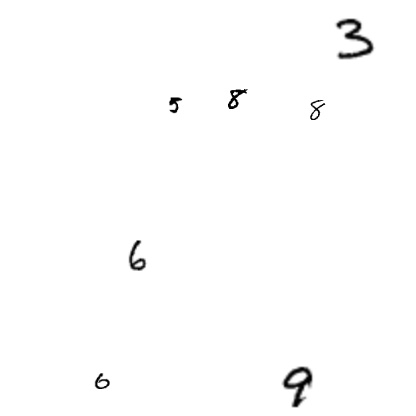 3
5 8 8
6
6 9